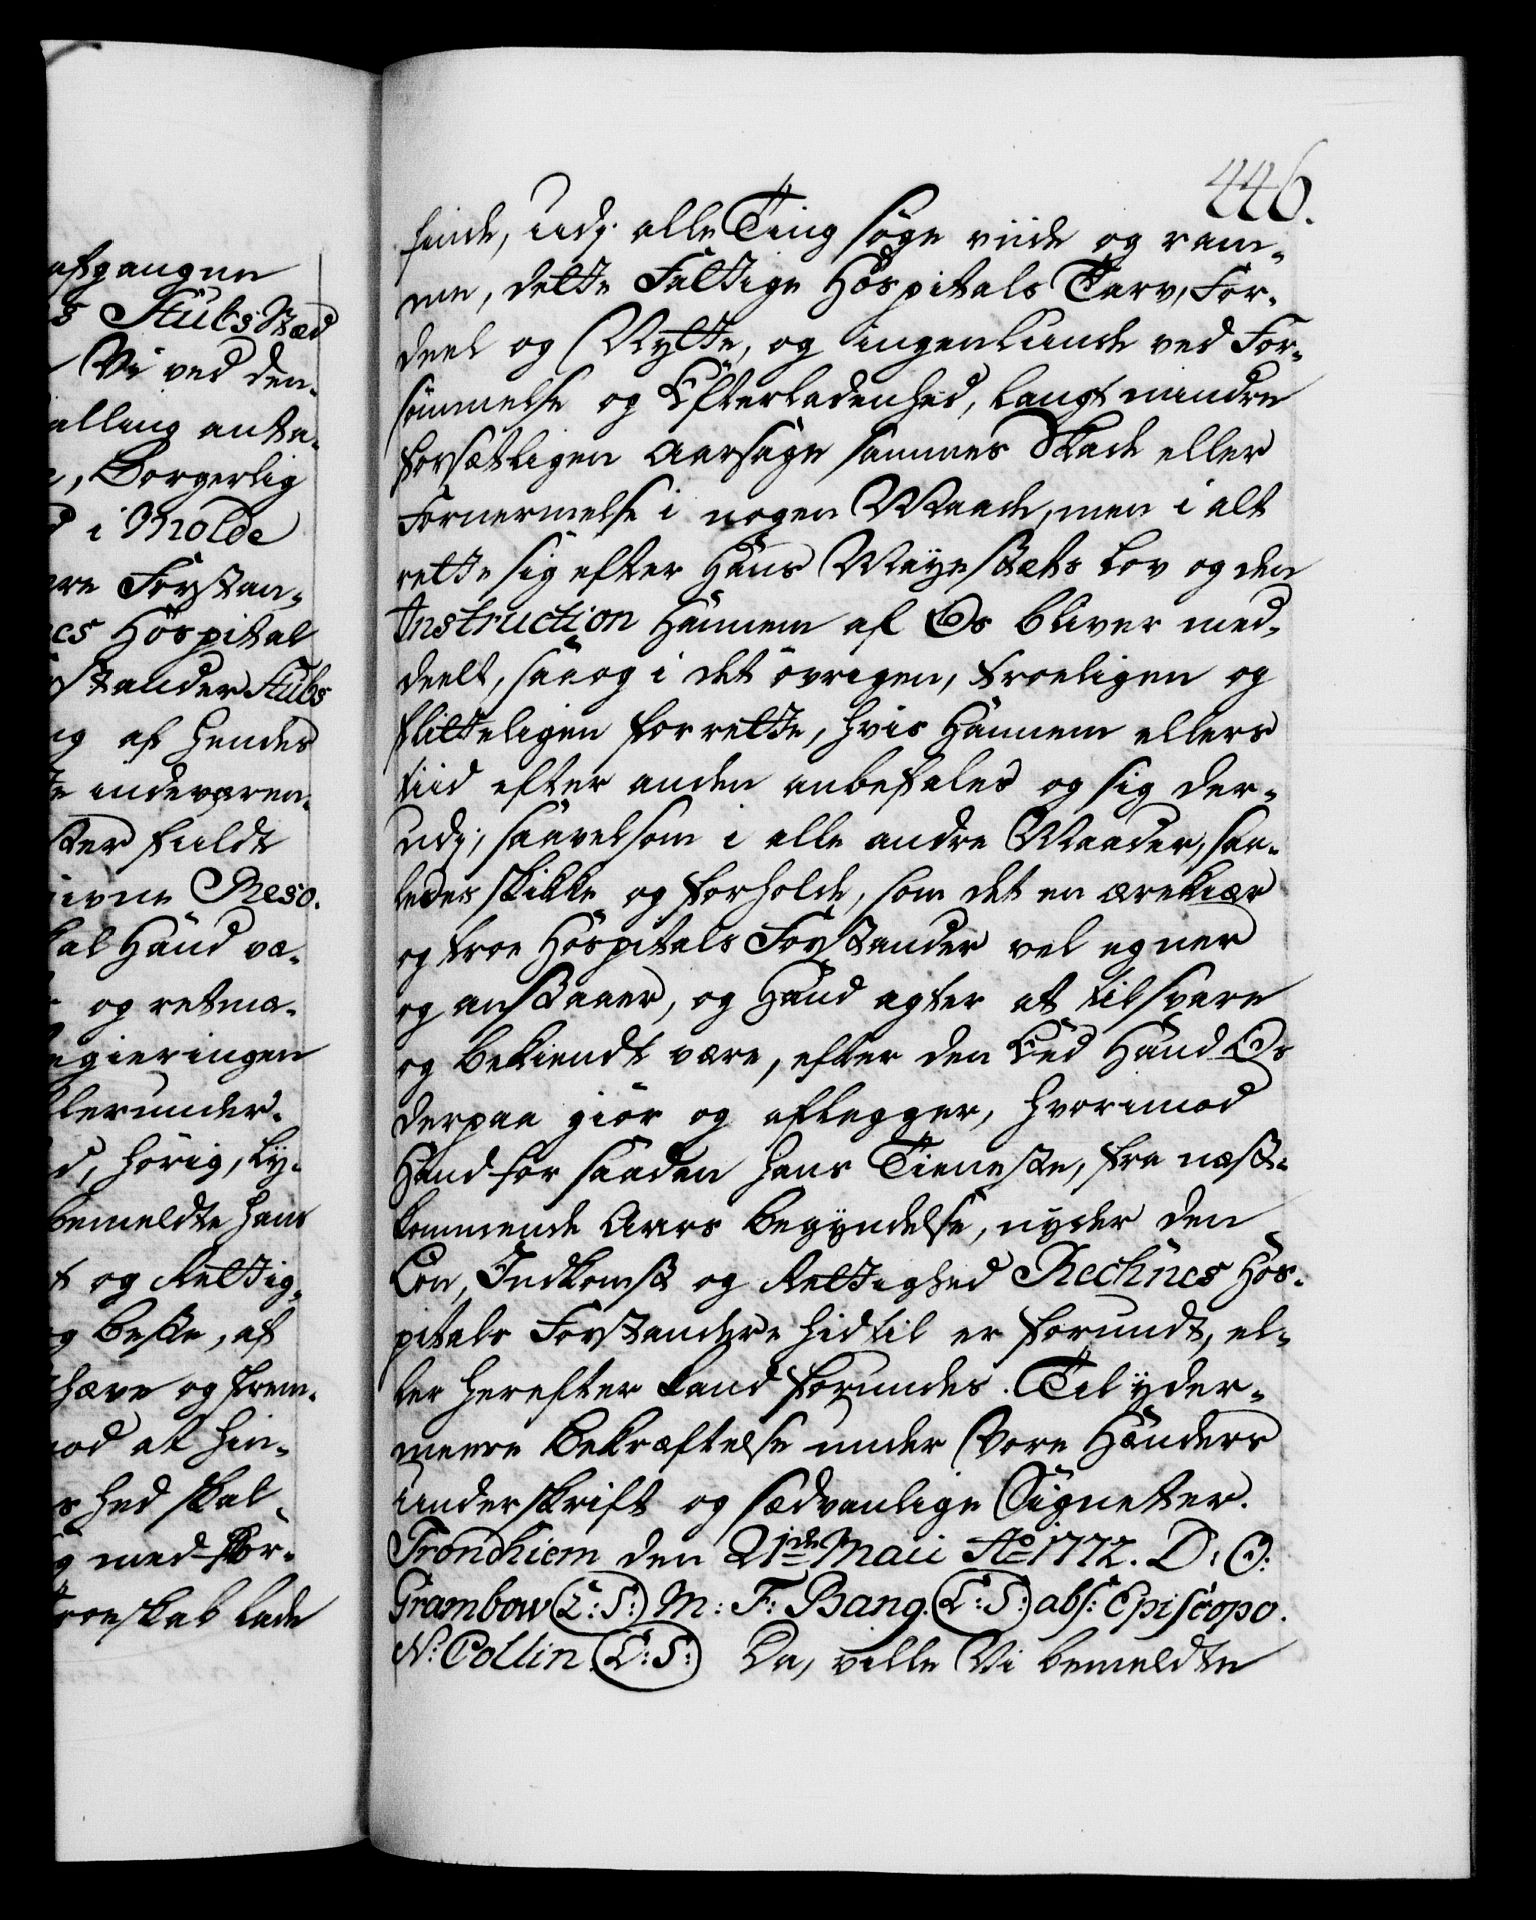 afgangne
s Stubs Stæd
Vi ved den-
alling anta-
e, Borgerlig
d i Molde
re Forstan-
es Hospital
stander Stubs
ng af hendes
te indeværen-
ster fuldt
givne Reso.
kal Hand væ-
og retmæ-
egieringen
derunder-
d, hörig, ly-
bemeldte hans
t og Rettig-
g beste, af
hæve og frem-
mod at hin-
s hed skal
g med for-
roeskab lade
446.
finde, udj alle Ting söge viide og ram-
me, dette Fattige Hospitals Tarv, For-
deel og Nytte, og ingenlunde ved For-
sömmelse og Efterladenhed, langt mindre
forsætligen aarsage sammes Skade eller
Fornermelse i nogen Maade, men i alt
rette sig efter Hans Mayestæts Lov og den
Instruction Hannem af Os bliver med-
deelt, saa og i det övrigen, troeligen og
flitteligen forrette, hvis Hannem ellers
tiid efter anden anbefales og sig der-
udj, saavelsom i alle andre Maader, saa-
ledes skikke og forholde, som det en ærekiær
og troe Hospitals Forstander vel egner
og anstaaer, og Hand agter at tilsvare
og bekiendt være, efter den Eed Hand Os
derpaa giör og aflegger, hvorimod
Hand for saadan hans Tieneste, fra næst-
kommende Aars begyndelse, nyder den
Lön, Indkomst og Rettighed Rechnes Hos-
pitals Forstandere hidtil er forundt, el-
ler herefter kand forundes. Til yder-
meere bekræftelse under Vore Hænders
underskrift og sædvanlige Signeter.
Trondhiem den 21de Maii Ao 1772. D: O:
Grambow (L: S:) M: F: Bang. (L: S:) abs: Episcopo.
N: Collin. (L: S:) Da, ville Vi bemeldte